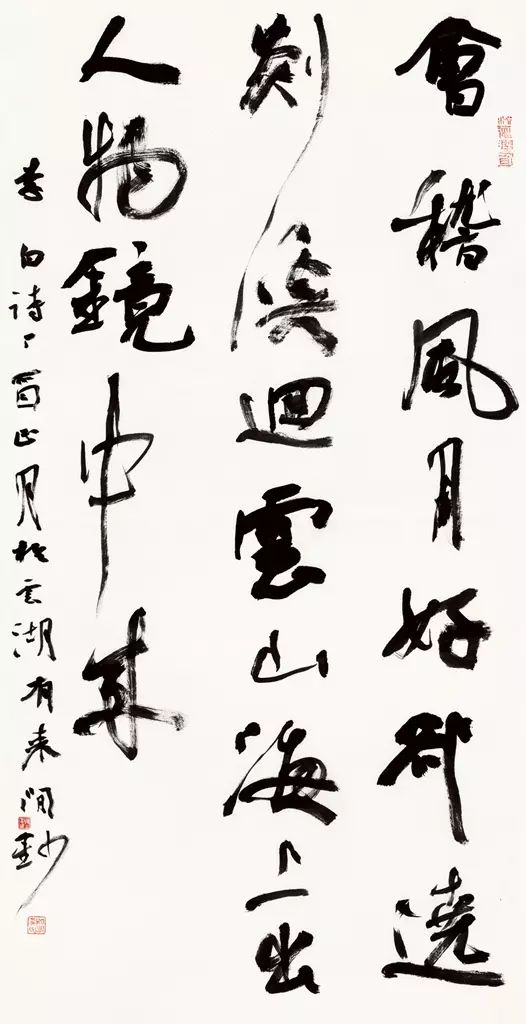 會稽風月好卻遶
剡溪迴雲山海上出
人物鏡中來
李白詩丁酉正月於雲湖有來閒鈔